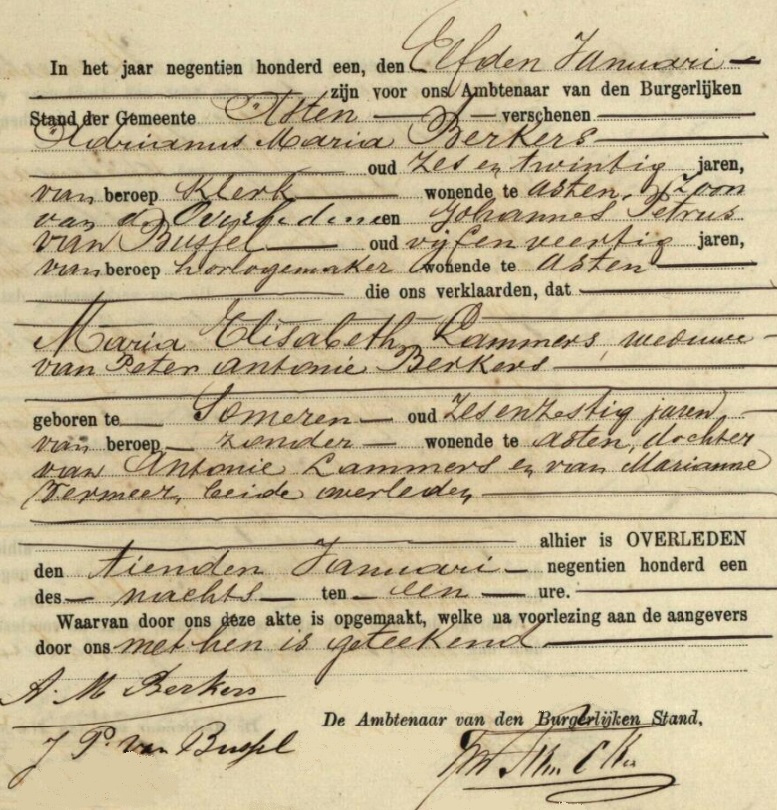 In het jaar negentien honderd een, den Elfden Januari
zijn voor ons Ambtenaar van den Burgerlijken
Stand der Gemeente Asten verschenen
Adrianus Maria Berkers
oud zes en twintig jaren,
van beroep klerk wonende te Asten, zoon
van de Overledene en Johannes Petrus
van Bussel oud vijf en veertig jaren,
van beroep horlogemaker wonende te Asten
die ons verklaarden, dat
Maria Elisabeth Lammers, weduwe
van Peter Antonie Berkers
geboren te Someren oud zesenzestig jaren,
van beroep zonder wonende te Asten, dochter
van Antonie Lammers en van Marianne
Vermeer, beide overleden
alhier is OVERLEDEN
den tienden Januari negentien honderd een
des nachts ten een ure.
Waarvan door ons deze akte is opgemaakt, welke na voorlezing aan de aangevers
door ons met hen is geteekend
A. M Berkers
De Ambtenaar van den Burgerlijken Stand,
J P. van Bussel